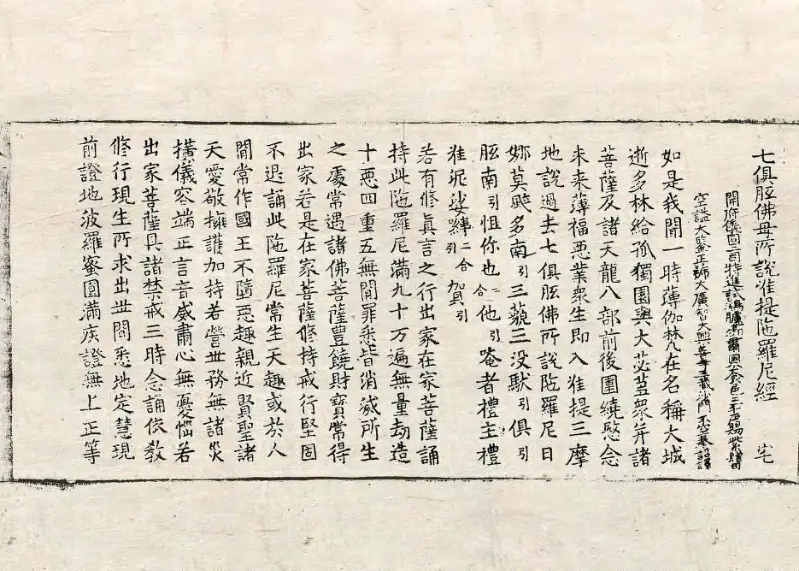 七俱胝佛母所說准提陁羅尼經 宅
開府儀同三司特進試鴻臚卿肅國公食邑三千戶賜紫贈司
空謚大鑒正號大廣智大興善寺三藏沙門不空奉詔譯
如是我聞一時薄伽梵在名稱大城
逝多林給孤獨園與大苾蒭衆并諸
菩薩及諸天龍八部前後圍繞愍念
未来薄福惡業衆生即入准提三摩
地說過去七俱胝佛所說陁羅尼日
娜莫颯多南引三藐三没馱引俱引
胝南引怛你也二合他引唵者禮主禮
准泥娑嚩二合引賀引
若有修真言之行出家在家菩薩誦
持此陁羅尼滿九十万遍無量劫造
十惡四重五無間罪悉皆消滅所生
之處常遇諸佛菩薩豊饒財寶常得
出家若是在家菩薩修持戒行堅固
不退誦此陁羅尼常生天趣或於人
間常作國王不隨惡趣親近賢聖諸
天愛敬擁護加持若營世務無諸灾
橫儀容端正言音威肅心無憂惱若
出家菩薩具諸禁戒三時念誦依教
修行現生所求出世間悉地定慧現
前證地波羅蜜圓滿疾證無上正等